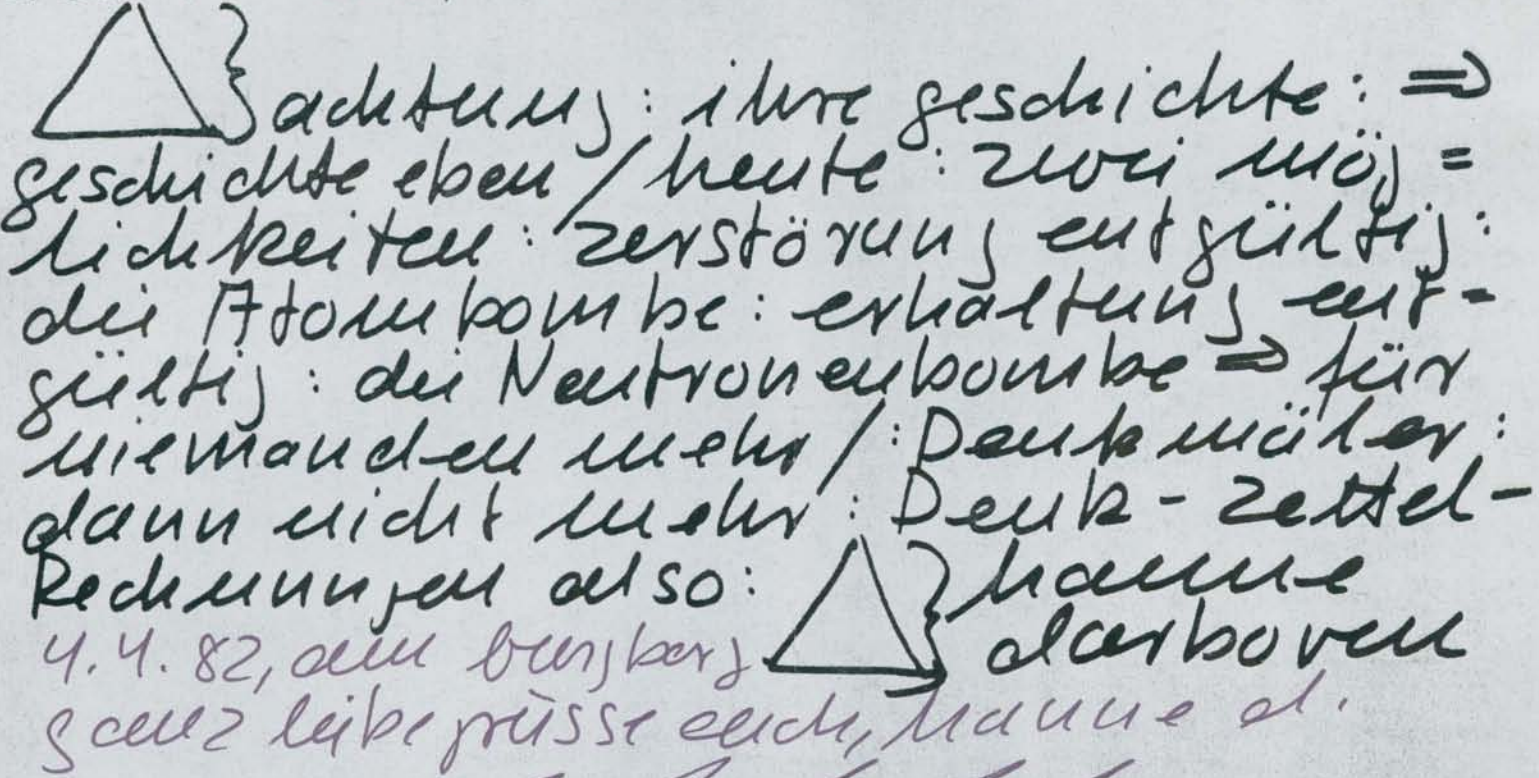 achtung: ihre geschichte: ⇒
geschichte eben / heute: zwei mög=
lichkeiten: zerstörung entgültig:
die Atombombe: erhaltung ent-
gültig: die Neutronenbombe ⇒ für
niemanden mehr /: Denkmäler:
dann nicht mehr: Denk-zettel-
Rechnungen also: hanne
darboven
4.4.82, am burgberg
ganz liebe grüsse euch, hanne d.